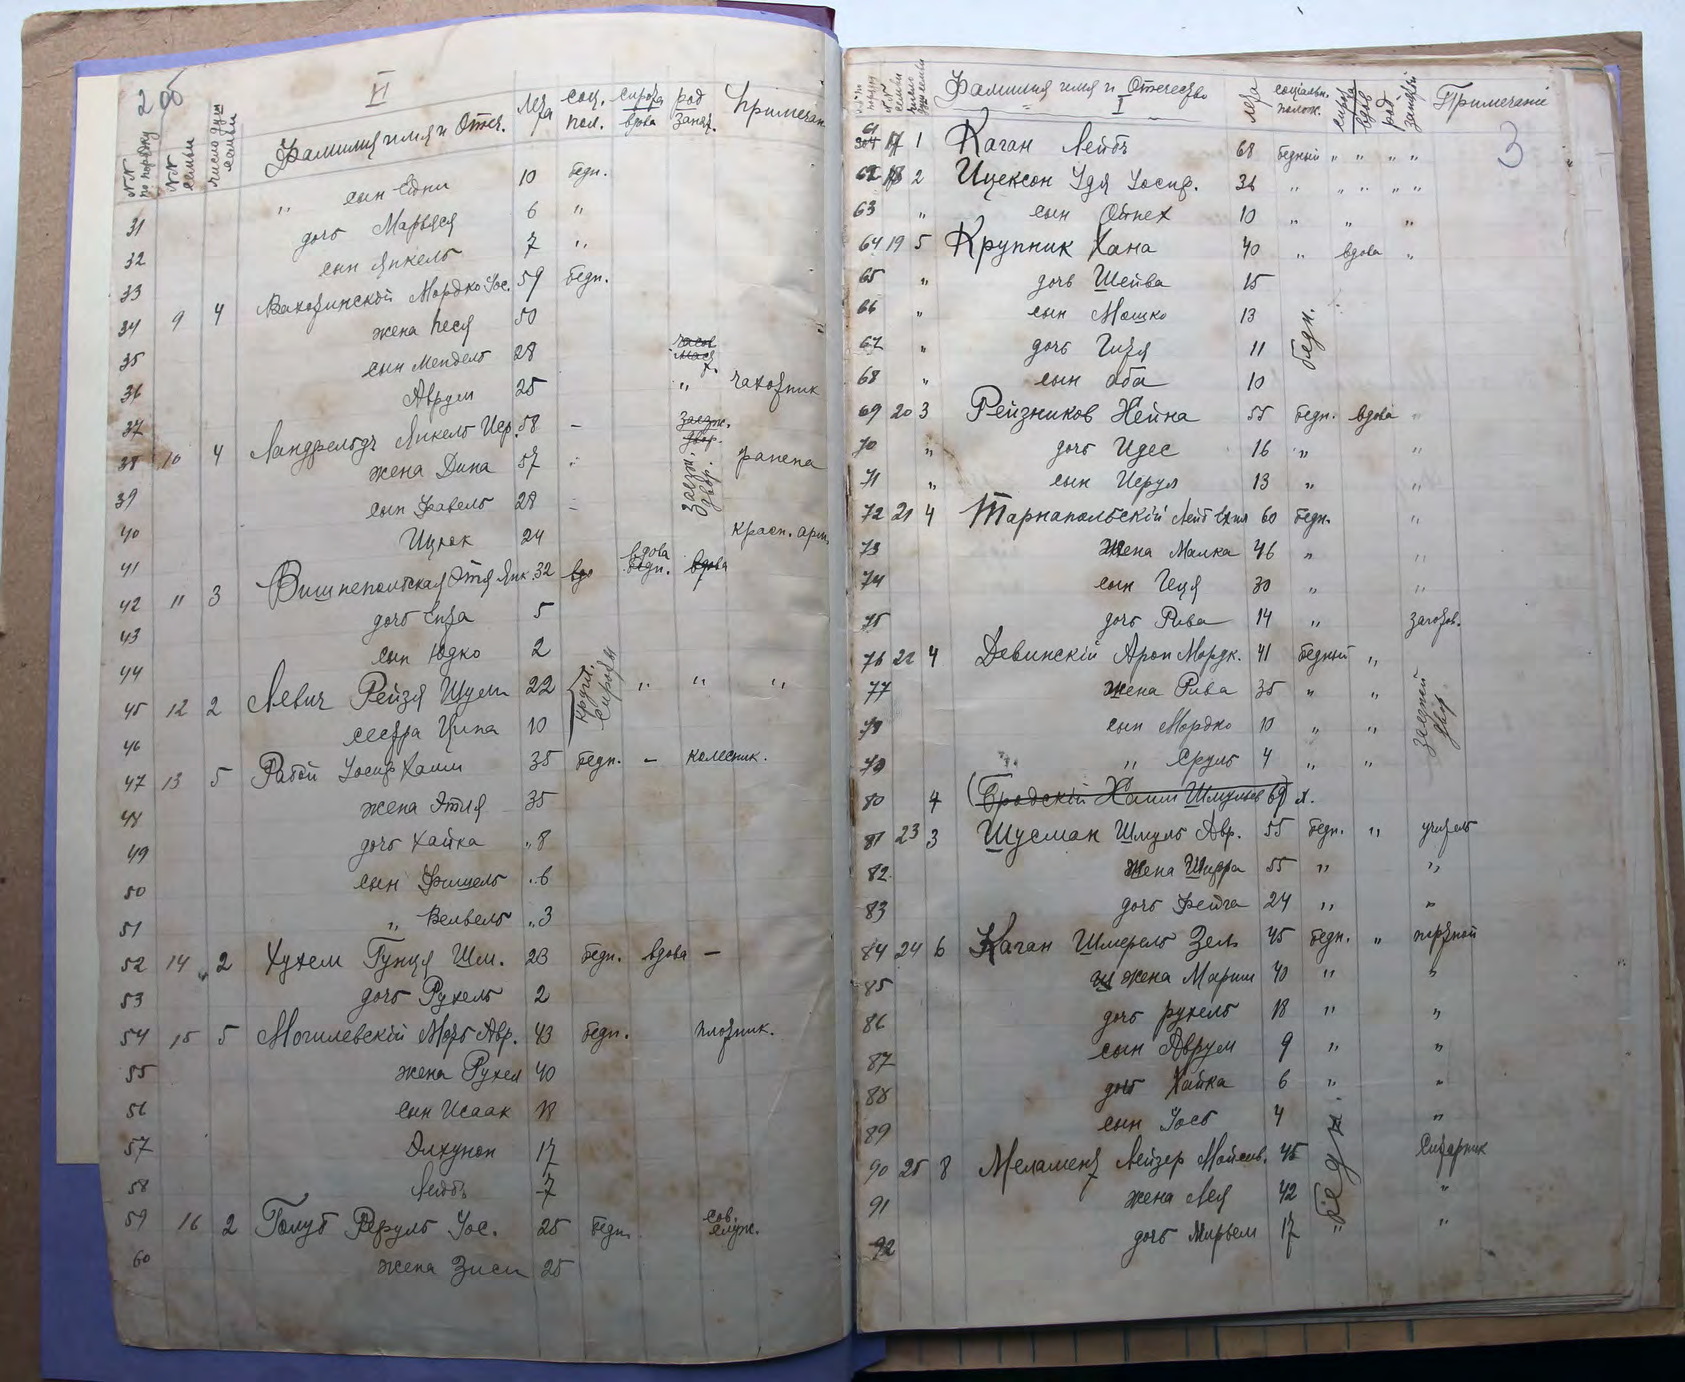 2 об
II
№№ по порядку
№№ семьи
число душ семьи
Фамилия имя и Отеч.
Лета
соц. пол.
сирота вдова
род занят.
Примечан.
31 " сын Едни 10 бедн.
32 дочь Марьяся 6 "
33 сын Янкель 7 "
34 9 4 Мордко Иос. 59 бедн.
35 жена Песя 50
36 сын Мендель 28
37 Аврум 25 "
38 10 4 Янкель Иср. 58 –
39 жена Дина 57 "
40 сын Файвель 28 –
41 Ицхок 24 красн. арм.
42 11 3 Вишнепольская Этя Янк. 32 вдова бедн.
43 дочь Ента 5
44 сын Юдко 2
45 12 2 Левич Рейзя Шулим 22 кругл. сироты " " "
46 сестра Ципа 10
47 13 5 Рабой Иосиф Хаим 35 бедн. – колесник.
48 жена Этия 35
49 дочь Хайка " 8
50 сын Фишель " 6
51 " Велвель " 3
52 14 " 2 Шм. 23 бедн. вдова –
53 дочь Рухель 2
54 15 5 Могилевскій Мотъ Авр. 43 бедн. плотник.
55 жена Рухел 40
56 сын Исаак 18
57 Элхунон 17
58 Лейбъ 7
59 16 2 Голуб Иос. 25 бедн. сов. служ.
60 жена Зиси 25
№№ по порядку
№№ семьи
число душ семьи
Фамилия имя и Отчество
I
Лета
социальн. полож.
сирота вдова
род занятий
Примечаніе
3
61 17 1 Каган Лейбъ 68 бедный " " " "
62 18 2 Ицексон Удя Иосиф. 36 " " " " "
63 " сын Ойнех 10 " " "
64 19 5 Крупник Хана 40 " вдова "
65 " дочь Шейва 15
66 " сын Мошко 13 бедн.
67 " дочь Гитя 11
68 " сын Аба 10
69 20 3 Рейзников Хейна 55 бедн. вдова "
70 " дочь Идес 16 " "
71 " сын Исрул 13 " "
72 21 4 Тарнапольскій Лейб 60 бедн. "
73 жена Малка 46 " "
74 сын Геця 30 " "
75 дочь Рива 14 "
76 22 4 Девинскій Арон Мордк. 41 бедный "
77 жена Рива 35 " "
78 сын Мордко 10 " "
79 " Сруль 4 " "
80 4 (Бродскій Хаим Шмулев 69
81 23 3 Шусман Шмуль Авр. 55 бедн. " учитель
82 жена Шифра 55 " "
83 дочь Фейга 24 " "
84 24 6 Каган Шмерель Зель 45 бедн. " портной
85 жена Мариш 40 " "
86 дочь рухель 18 " "
87 сын Аврум 9 " "
88 дочь Хайка 6 " "
89 сын Иось 4 "
90 25 8 Меламент Лейзер Мойсев. 45 бедн. ситарник
91 жена Лея 42 "
92 дочь Мирьем 17 " "